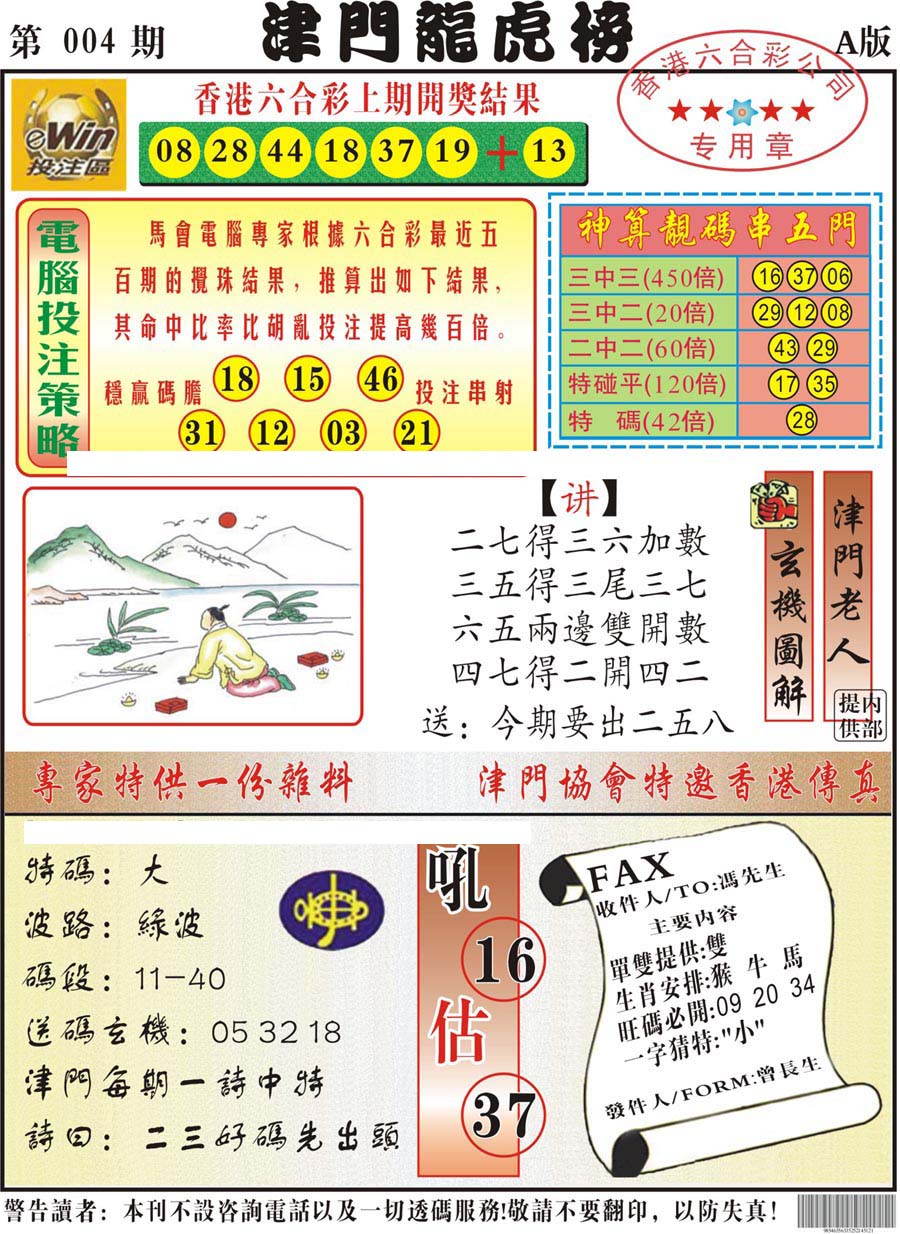 第 004 期
津門龍虎榜
A版
eWin
投注區
香港六合彩上期開獎結果
08 28 44 18 37 19 + 13
香港六合彩公司
专用章
電腦投注策略
馬會電腦專家根據六合彩最近五
百期的攪珠結果，推算出如下結果，
其命中比率比胡亂投注提高幾百倍。
穩贏碼膽 18 15 46 投注串射
31 12 03 21
神算靚碼串五門
三中三(450倍) 16 37 06
三中二(20倍) 29 12 08
二中二(60倍) 43 29
特碰平(120倍) 17 35
特 碼(42倍) 28
【讲】
二七得三六加數
三五得三尾三七
六五兩邊雙開數
四七得二開四二
送：今期要出二五八
玄機圖解
津門老人
内部提供
專家特供一份雜料
津門協會特邀香港傳真
特碼：大
波路：綠波
碼段：11-40
送碼玄機：05 32 18
津門每期一詩中特
詩曰：二三好碼先出頭
吼
16
估
37
FAX
收件人/TO:馮先生
主要内容
單雙提供:雙
生肖安排:猴 牛 馬
旺碼必開:09 20 34
一字猜特:"小"
發件人/FORM:曾長生
警告讀者：本刊不設咨詢電話以及一切透碼服務!敬請不要翻印，以防失真!